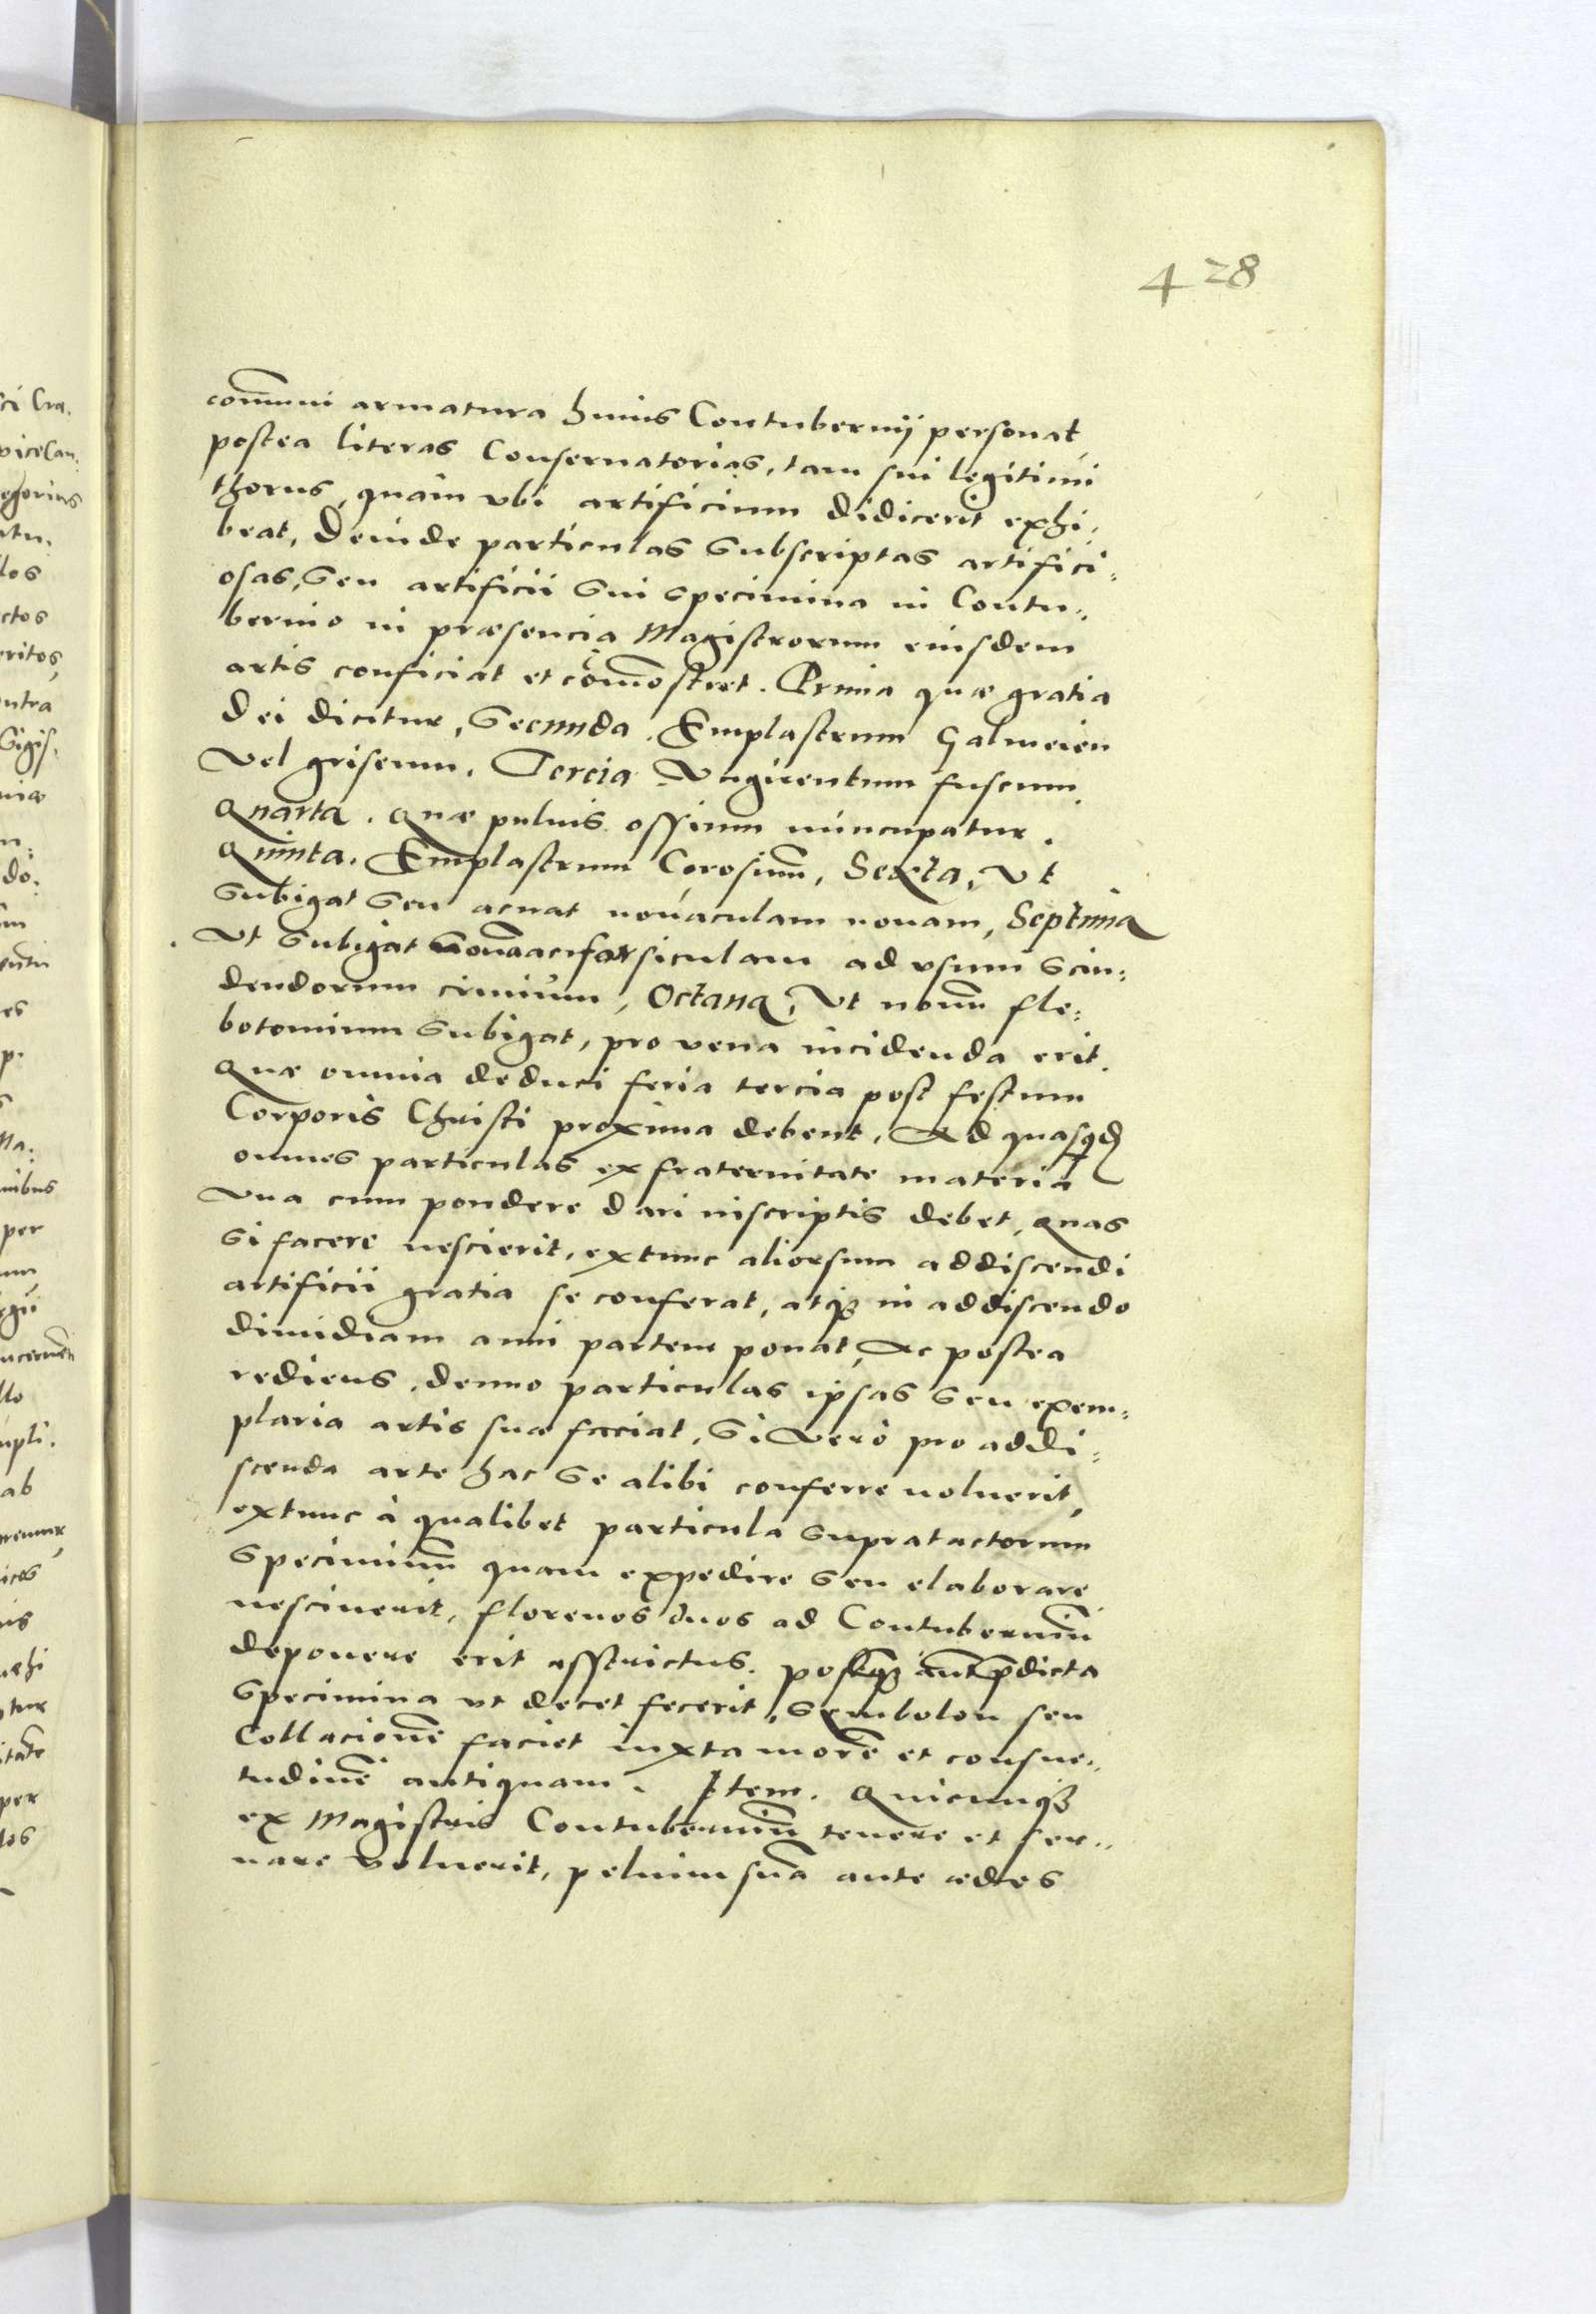 428
com̃uni armatura huius Contubernij personat,
postea literas Conseruatorias, tam sui legitimi
thorus, quàm vbi artificium didicerit exhi:
beat, Deinde particulas subscriptas artifici:
osas, seu artificii sui specimina in Contu:
bernio in præsencia Magistrorum eiusdem
artis conficiat et com̃ostret. Prima quæ gratia
Dei dicitur, Secunda. Emplastrum Galmeien
vel griseum, Tercia Vngwentum fuscum,
Quarta. Quæ puluis ossium nuncupatur.
Quinta. Emplastrum Corosiuũ, Sexta, Vt
subigat seu acuat nouaculam nouam, Septima
Vt subigat siculam ad vsum scin:
dendorum crinium, Octaua, Vt nouũ fle:
botomium subigat, pro vena incidenda erit.
Quæ omnia deduci feria tercia post festum
Corporis Christi proxima debent, Ad quas
omnes particulas ex fraternitate materia
Vna cum pondere dari inscriptis debet, quas
si facere nescierit, extunc aliorsum addiscendi
artificii gratia se conferat, atq; in addiscendo
dimidiam anni partem ponat, Ac postea
rediens, denuo particulas ipsas seu exem:
plaria artis suæ faciat, Si Verò pro addi:
scenda arte hac se alibi conferre noluerit,
extunc à qualibet particula supratactorum
speciminũ quam expedire seu elaborare
nesciuerit, florenos duos ad Contuberniũ
deponere erit asstrictus. postq; aut̃ p̃dicta
specimina vt decet fecerit, Symbolon seu
Collacionẽ faciet iuxta morẽ et consue:
tudinẽ antiquam. Item. Quicunq;
ex Magistris Contuberniũ tenere et ser:
uare voluerit, peluim suã ante ædes